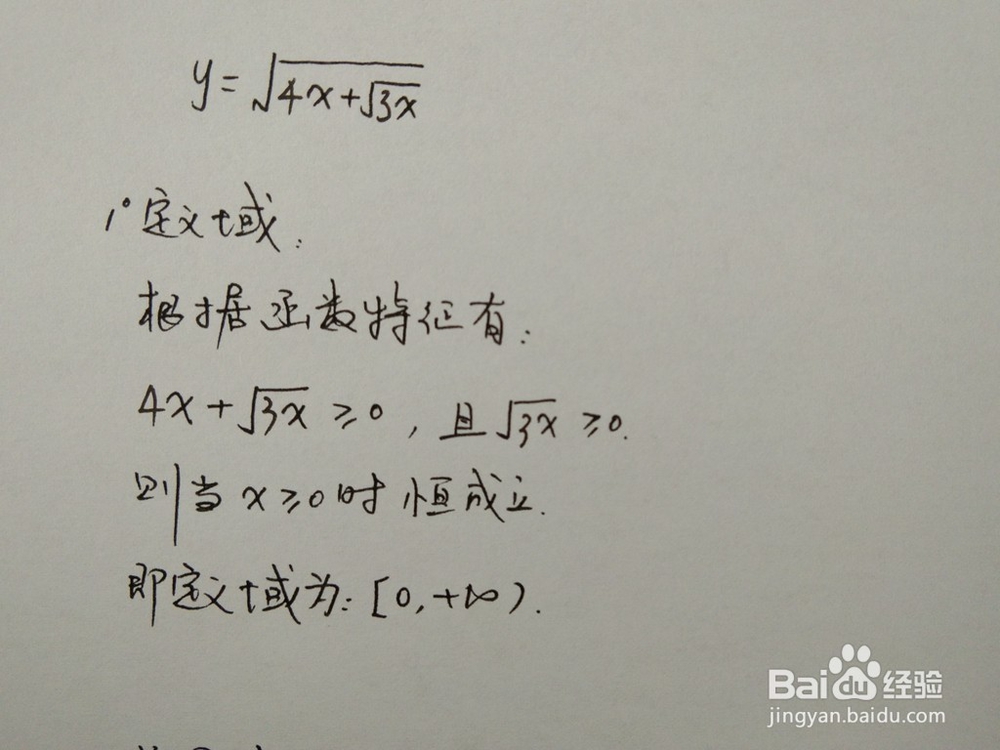 y=√(4x+√(3x))
1°定义域:
根据函数特征有:
4x+√(3x)≥0,且√(3x)≥0.
则当x≥0时恒成立.
即定义域为:[0,+∞).
Baidu经验
jingyan.baidu.com